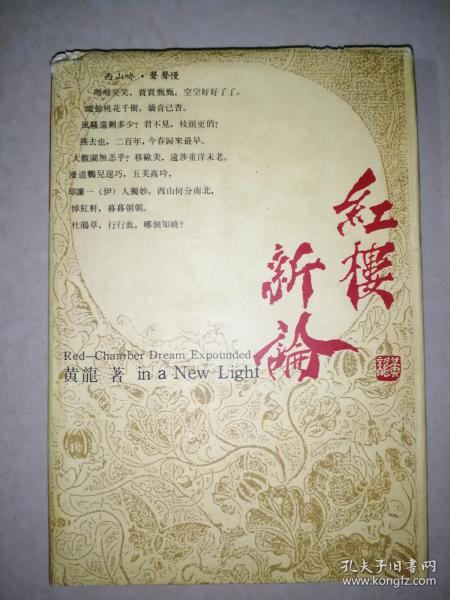 西山吟·聲聲慢
嘻嘻笑笑，賈賈甄甄，空空好好了了。
縱餘桃花千樹，嬌音已杳。
風騷還剩多少？君不見，枝頭更俏？
燕去也，二百年，今春歸來最早。
大觀園無恙乎？移歐美，遠涉重洋未老。
漫道鸚兒逞巧，五美高吟，
却讓一（伊）人獨妙。西山何分南北，
悼紅軒，暮暮朝朝。
杜鵑草，行行血，哪個知曉？
紅樓
新論
Red—Chamber Dream Expounded
黄龍 著 in a New Light
黃龍
孔夫子旧书网
www.kongfz.com